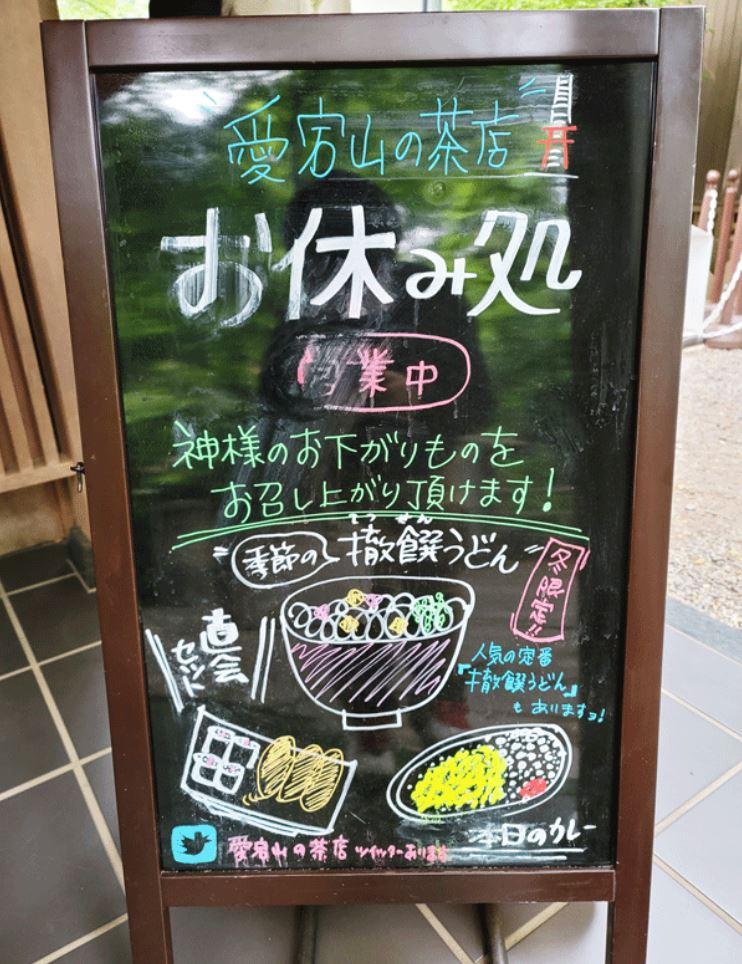 "愛宕山の茶店"
お休み処
営業中
神様のお下がりものを
お召し上がり頂けます!
てっせん
"季節の撤饌うどん"
冬限定!!
人気の定番
『撤饌うどん』
もありますョ!
直会
セット
本日のカレー
愛宕山の茶店 ツイッターあります